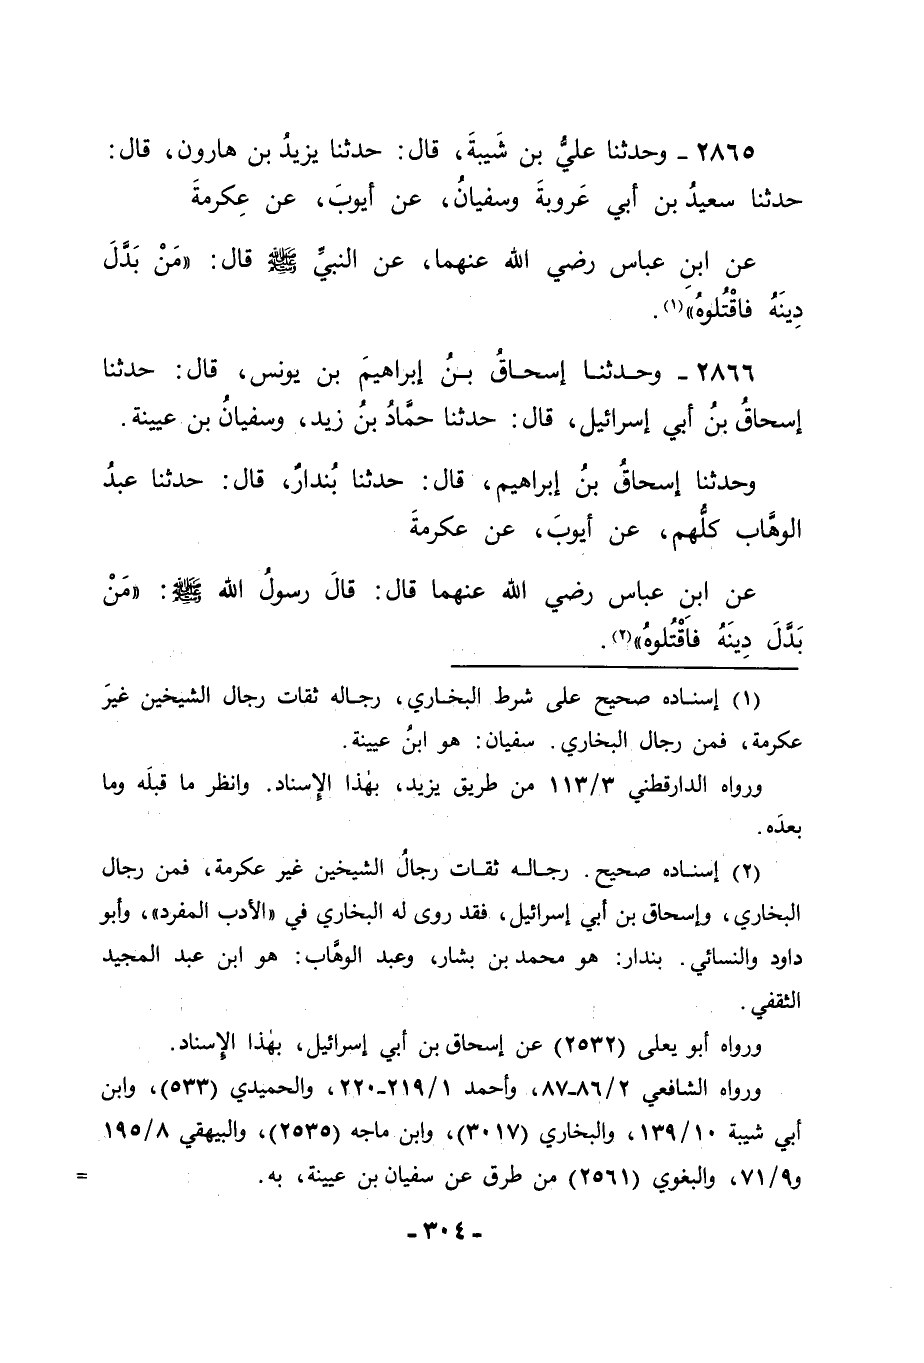 ٢٨٦٥ ـ وحدثنا عليُّ بن شَيبةَ، قال: حدثنا يزيدُ بن هارون، قال:
حدثنا سعيدُ بن أبي عَروبةَ وسفيانُ، عن أيوبَ، عن عِكرمةَ
عن ابنِ عباس رضي الله عنهما، عن النبيِّ ﷺ قال: «مَنْ بَدَّلَ
دِينَهُ فاقْتُلوهُ»(١).
٢٨٦٦ ـ وحدثنا إسحاقُ بنُ إبراهيمَ بن يونس، قال: حدثنا
إسحاقُ بنُ أبي إسرائيل، قال: حدثنا حمَّادُ بنُ زيد، وسفيانُ بن عيينة.
وحدثنا إسحاقُ بنُ إبراهيم، قال: حدثنا بُندارٌ، قال: حدثنا عبدُ
الوهَّاب كلُّهم، عن أيوبَ، عن عكرمةَ
عن ابنِ عباس رضي الله عنهما قال: قالَ رسولُ الله ﷺ: «مَنْ
بَدَّلَ دِينَهُ فاقْتُلوهُ»(٢).
(١) إسناده صحيح على شرط البخاري، رجاله ثقات رجال الشيخين غيرَ
عكرمة، فمن رجال البخاري. سفيان: هو ابنُ عيينة.
ورواه الدارقطني ١١٣/٣ من طريق يزيد، بهٰذا الإِسناد. وانظر ما قبلَه وما
بعدَه.
(٢) إسناده صحيح. رجاله ثقات رجالُ الشيخين غير عكرمة، فمن رجال
البخاري، وإسحاق بن أبي إسرائيل، فقد روى له البخاري في «الأدب المفرد»، وأبو
داود والنسائي. بندار: هو محمد بن بشار، وعبد الوهَّاب: هو ابن عبد المجيد
الثقفي.
ورواه أبو يعلى (٢٥٣٢) عن إسحاق بن أبي إسرائيل، بهٰذا الإِسناد.
ورواه الشافعي ٨٦/٢ـ٨٧، وأحمد ٢١٩/١ـ٢٢٠، والحميدي (٥٣٣)، وابن
أبي شيبة ١٣٩/١٠، والبخاري (٣٠١٧)، وابن ماجه (٢٥٣٥)، والبيهقي ١٩٥/٨
و٧١/٩، والبغوي (٢٥٦١) من طرق عن سفيان بن عيينة، به. =
ـ ٣٠٤ ـ